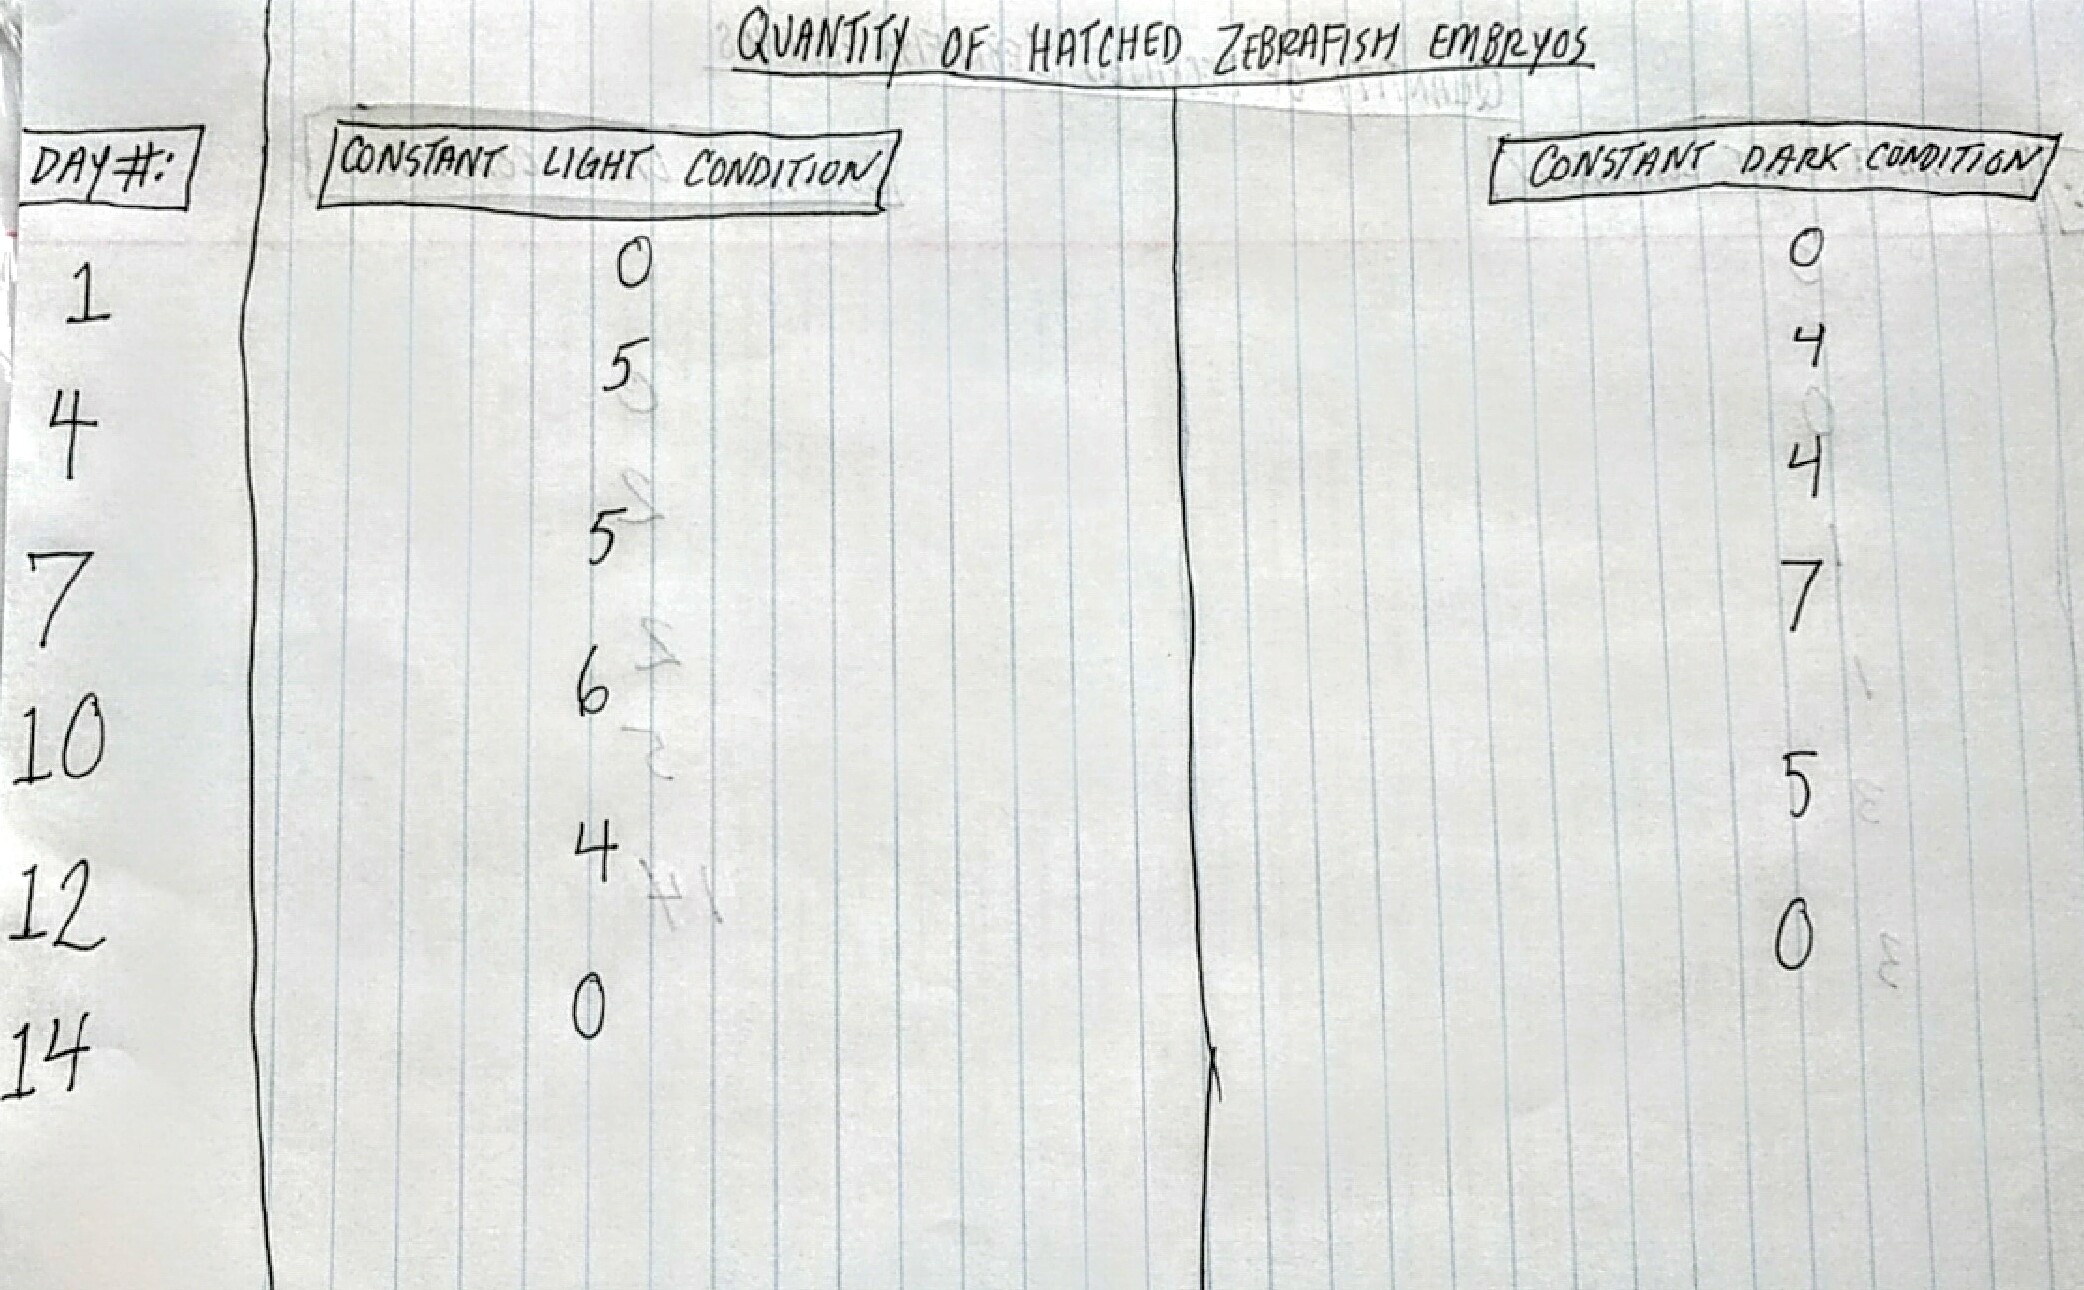 QUANTITY OF HATCHED ZEBRAFISH EMBRYOS
DAY #: CONSTANT LIGHT CONDITION CONSTANT DARK CONDITION
1 0 0
4 5 4
7 5 4
10 6 7
12 4 5
14 0 0